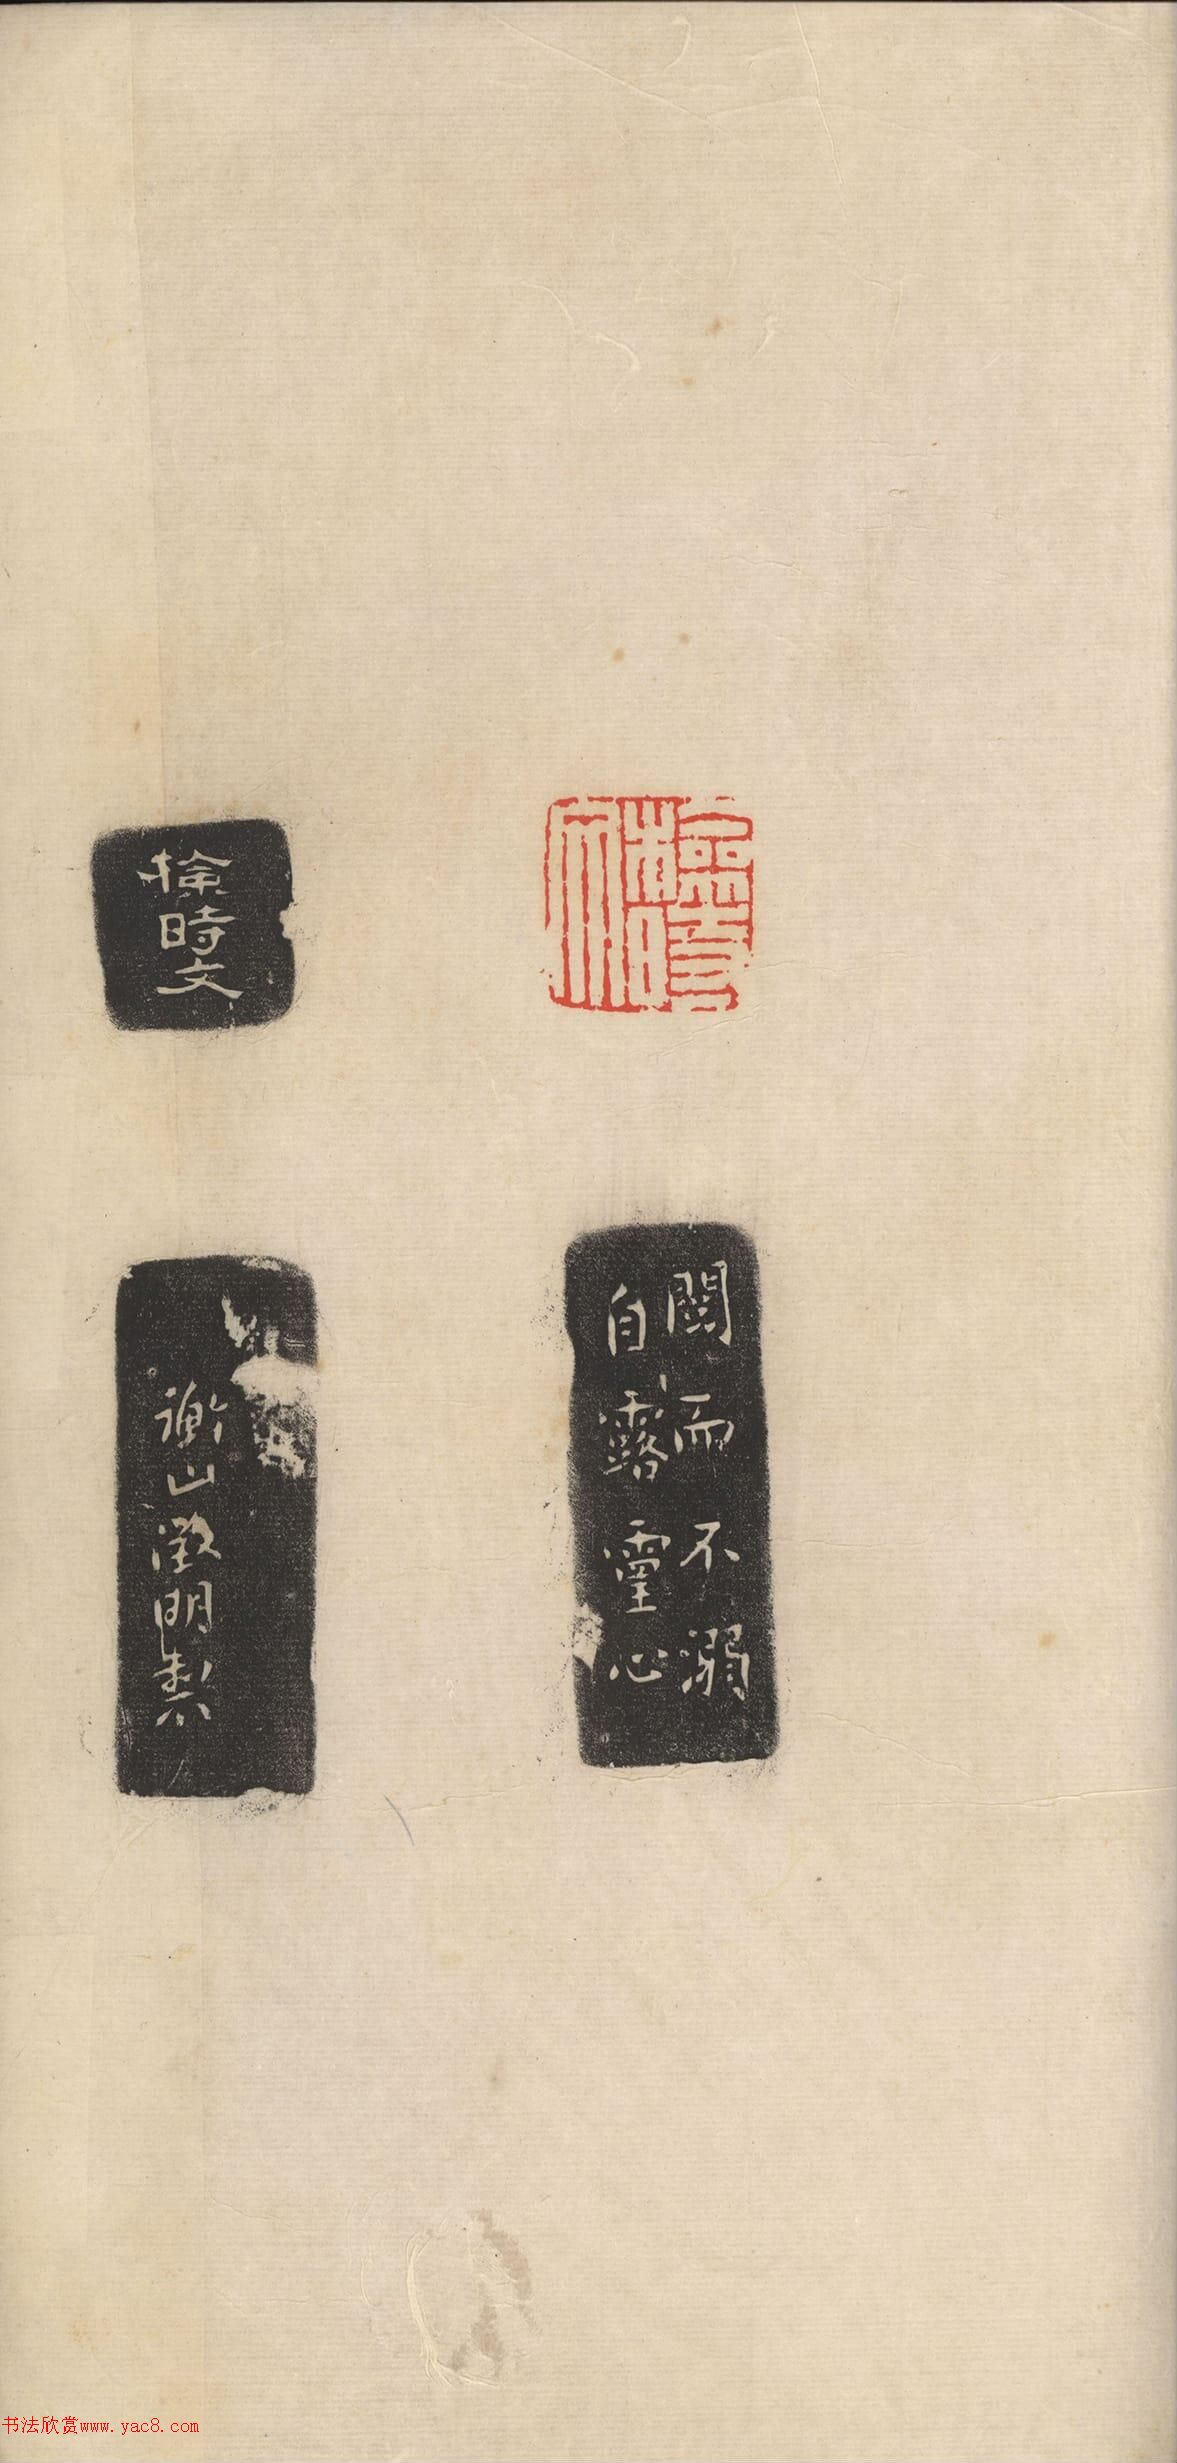 閱而不溺
自露靈心
徐時文
衡山徵明製
书法欣赏www.yac8.com